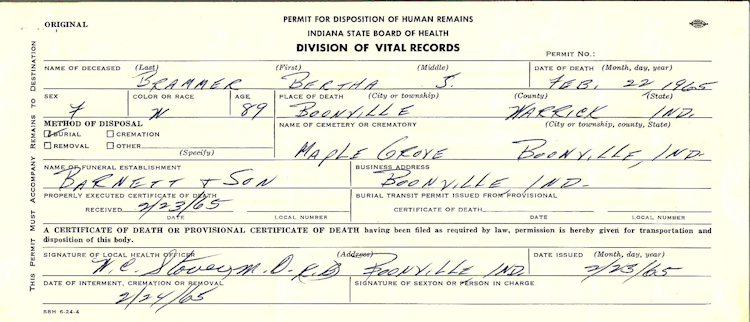 ORIGINAL
PERMIT FOR DISPOSITION OF HUMAN REMAINS
INDIANA STATE BOARD OF HEALTH
DIVISION OF VITAL RECORDS
PERMIT NO.:
NAME OF DECEASED (Last) (First) (Middle) DATE OF DEATH (Month, day, year)
BRAMMER BERTHA J. FEB. 22 1965
SEX COLOR OR RACE AGE PLACE OF DEATH (City or township) (County) (State)
F W 89 BOONVILLE WARRICK IND.
METHOD OF DISPOSAL NAME OF CEMETERY OR CREMATORY (City or township, county, State)
BURIAL CREMATION
REMOVAL OTHER
(Specify)
MAPLE GROVE BOONVILLE, IND.
NAME OF FUNERAL ESTABLISHMENT BUSINESS ADDRESS
BARNETT & SON BOONVILLE, IND.
PROPERLY EXECUTED CERTIFICATE OF DEATH BURIAL TRANSIT PERMIT ISSUED FROM PROVISIONAL
RECEIVED 2/23/65 CERTIFICATE OF DEATH
DATE LOCAL NUMBER DATE LOCAL NUMBER
A CERTIFICATE OF DEATH OR PROVISIONAL CERTIFICATE OF DEATH having been filed as required by law, permission is hereby given for transportation and
disposition of this body.
SIGNATURE OF LOCAL HEALTH OFFICER (Address) DATE ISSUED (Month, day, year)
M.D. BOONVILLE IND. 2/23/65
DATE OF INTERMENT, CREMATION OR REMOVAL SIGNATURE OF SEXTON OR PERSON IN CHARGE
2/24/65
SBH 6-24-4
THIS PERMIT MUST ACCOMPANY REMAINS TO DESTINATION